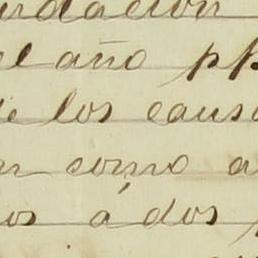 dación
el año pp
de los causa
n como a
os á dos